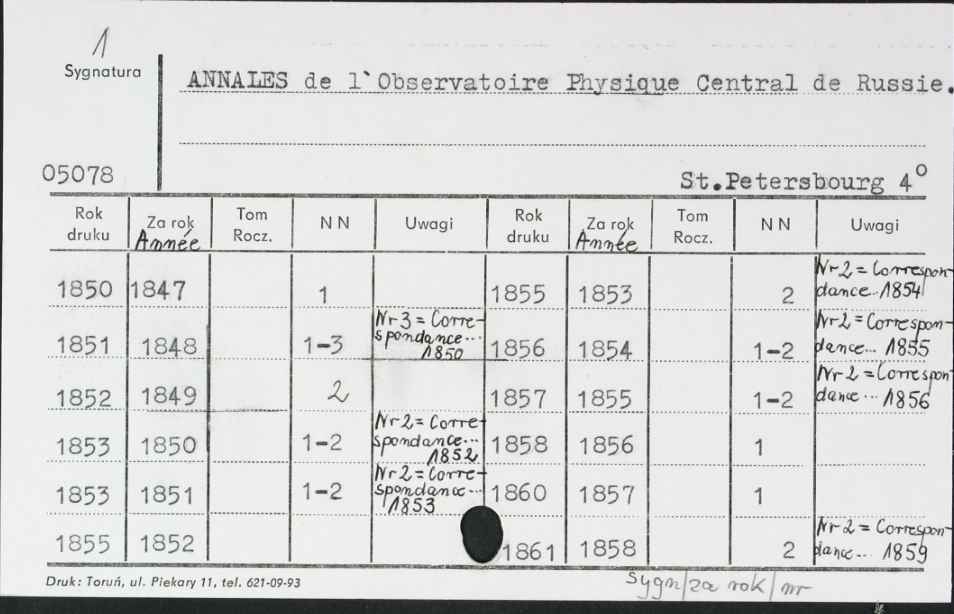 1
Sygnatura
ANNALES de l`Observatoire Physique Central de Russie.
05078
St.Petersbourg 4°
Rok druku | Za rok Année | Tom Rocz. | NN | Uwagi | Rok druku | Za rok Année | Tom Rocz. | NN | Uwagi
1850 | 1847 | | 1 | | 1855 | 1853 | | 2 | Nr 2 = Correspondance.. 1854
1851 | 1848 | | 1-3 | Nr 3 = Correspondance... 1850 | 1856 | 1854 | | 1-2 | Nr 2 = Correspondance... 1855
1852 | 1849 | | 2 | | 1857 | 1855 | | 1-2 | Nr 2 = Correspondance... 1856
1853 | 1850 | | 1-2 | Nr 2 = Correspondance... 1852 | 1858 | 1856 | | 1 |
1853 | 1851 | | 1-2 | Nr 2 = Correspondance... 1853 | 1860 | 1857 | | 1 |
1855 | 1852 | | | | 1861 | 1858 | | 2 | Nr 2 = Correspondance... 1859
Druk: Toruń, ul. Piekary 11, tel. 621-09-93
Sygn/za rok/nr